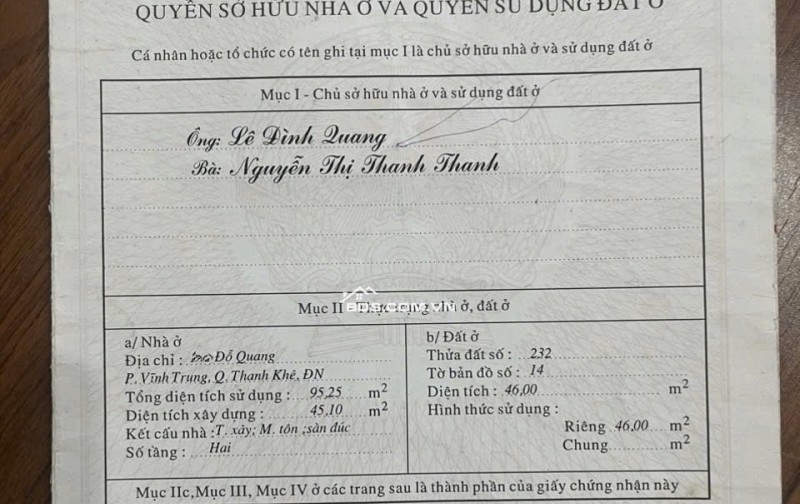 QUYỀN SỞ HỮU NHÀ Ở VÀ QUYỀN SỬ DỤNG ĐẤT Ở
Cá nhân hoặc tổ chức có tên ghi tại mục I là chủ sở hữu nhà ở và sử dụng đất ở
Mục I - Chủ sở hữu nhà ở và sử dụng đất ở
Ông: Lê Đình Quang
Bà: Nguyễn Thị Thanh Thanh
Mục II - Thực trạng nhà ở, đất ở
bds.com.vn
a/ Nhà ở
Địa chỉ : Đỗ Quang
P. Vĩnh Trung, Q. Thanh Khê, ĐN
Tổng diện tích sử dụng : 95,25 m2
Diện tích xây dựng : 45,10 m2
Kết cấu nhà : T. xây; M. tôn ;sàn đúc
Số tầng : Hai
b/ Đất ở
Thửa đất số : 232
Tờ bản đồ số : 14
Diện tích : 46,00 m2
Hình thức sử dụng :
Riêng 46,00 m2
Chung m2
Mục IIc,Mục III, Mục IV ở các trang sau là thành phần của giấy chứng nhận này